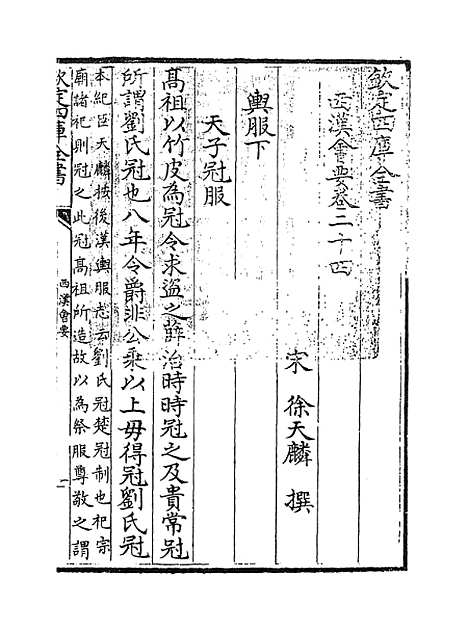 欽定四庫全書
西漢會要卷二十四
宋 徐天麟 撰
輿服下
天子冠服
髙祖以竹皮為冠令求盗之薛治時時冠之及貴常冠
所謂劉氏冠也八年令爵非公乗以上毋得冠劉氏冠
本紀臣天麟按後漢輿服志云劉氏冠楚冠制也祀宗
廟諸祀則冠之此冠髙祖所造故以為祭服尊敬之謂
欽定四庫全書
西漢會要
一